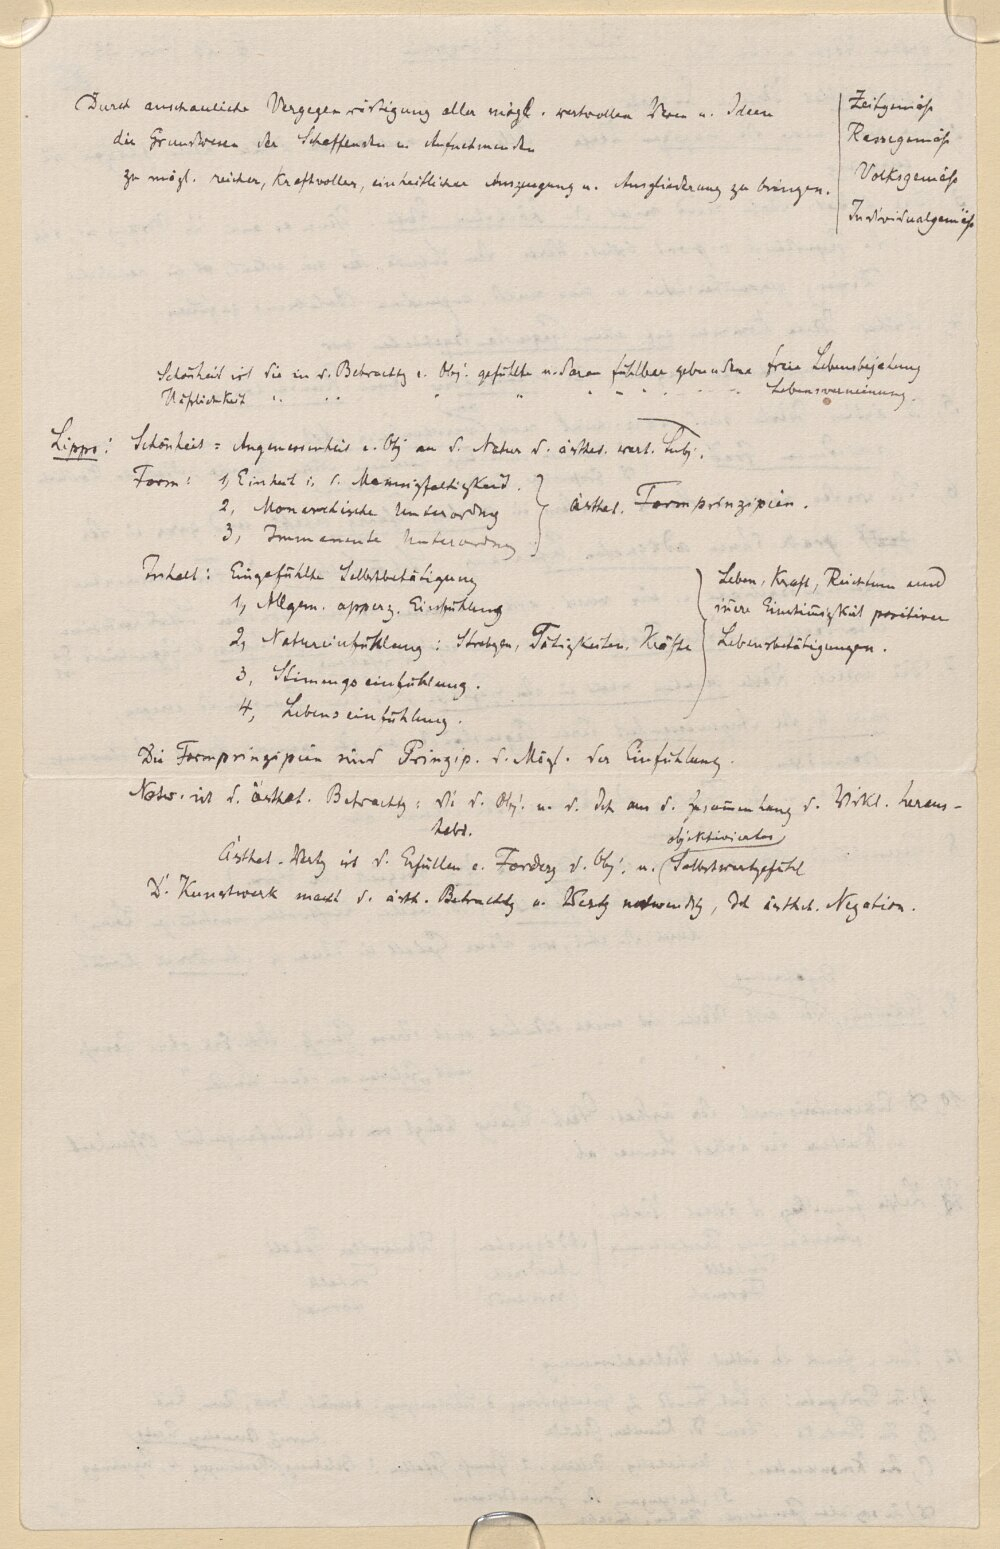 Durch anschauliche Vergegenwärtigung aller mögl. wertvollen Wesen u. Ideen
die Grundwesen der Schaffenden u. Aufnehmenden
zu mögl. reicher, kraftvoller, einheitlicher Ausprägung u. Ausgliederung zu bringen.
Zeitgemäß
Rassegemäß
Volksgemäß
Individualgemäß
Schönheit ist die in d. Betrachtg e. Obj. gefühlte u. daran fühlbar gebundene freie Lebensbejahung
Häßlichkeit " " " " " " " Lebensverneinung.
Lipps: Schönheit = Angemessenheit e. Obj an d. Natur d. ästhet. wert. Subj.
Form: 1, Einheit i. d. Mannigfaltigkeit.
2, Monarchische Unterordng
3, Immanente Unterordng
ästhet. Formprinzipien.
Inhalt: Eingefühlte Selbstbetätigung
1, Allgem. apperz. Einfühlung
2, Natureinfühlung: Strebgen, Tätigkeiten, Kräfte
3, Stimungseinfühlung.
4, Lebenseinfühlung.
Leben, Kraft, Reichtum und
inere Einstimigkeit positiver
Lebensbetätigungen.
Die Formprinzipien sind Prinzip. d. Mögl. der Einfühlung.
Notw. ist d. ästhet. Betrachtg: die d. Obj. u. d. Ich aus d. Zusamenhang d. Wirkl. heraus-
hebt.
objektiviertes
Ästhet. Wertg ist d. Erfüllen e. Forderg d. Obj. u. (Selbstwertgefühl
D. Kunstwerk macht d. ästh. Betrachtg u. Wertg notwendig, ästhet. Negation.